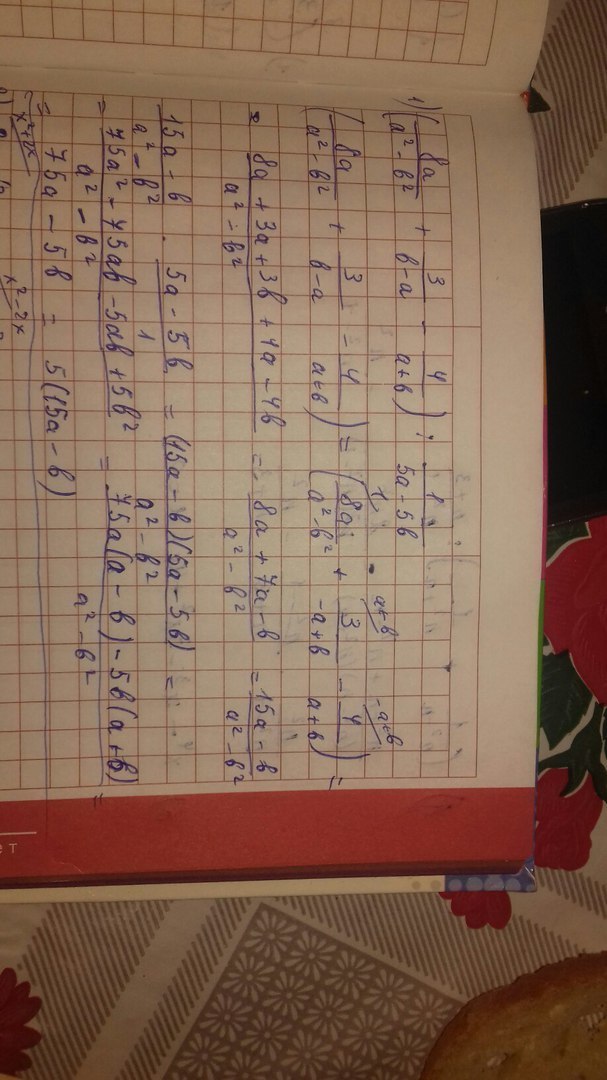 1) (8a/(a² - b²) + 3/(b-a) - 4/(a+b)) : 1/(5a-5b)
(8a/(a² - b²) + 3/(b-a) - 4/(a+b)) = (8a/(a² - b²) + 3/(-a+b) - 4/(a+b)) =
= (8a + 3a + 3b + 4a - 4b)/(a² - b²) = (8a + 7a - b)/(a² - b²) = (15a - b)/(a² - b²)
(15a - b)/(a² - b²) · (5a - 5b)/1 = ((15a - b)(5a - 5b))/(a² - b²) =
= (75a² - 75ab - 5ab + 5b²)/(a² - b²) = (75a(a - b) - 5b(a + b))/(a² - b²) =
= 75a - 5b = 5(15a - b)
x²+2x x² - 2x
ет